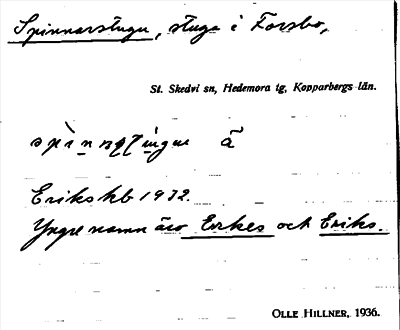 Spinnarstugu, stuga i Forsbo,
St. Skedvi sn, Hedemora tg, Kopparbergs län.
Erikskb 1932.
Yngre namn äro Erkes och Eriks.
OLLE HILLNER, 1936.